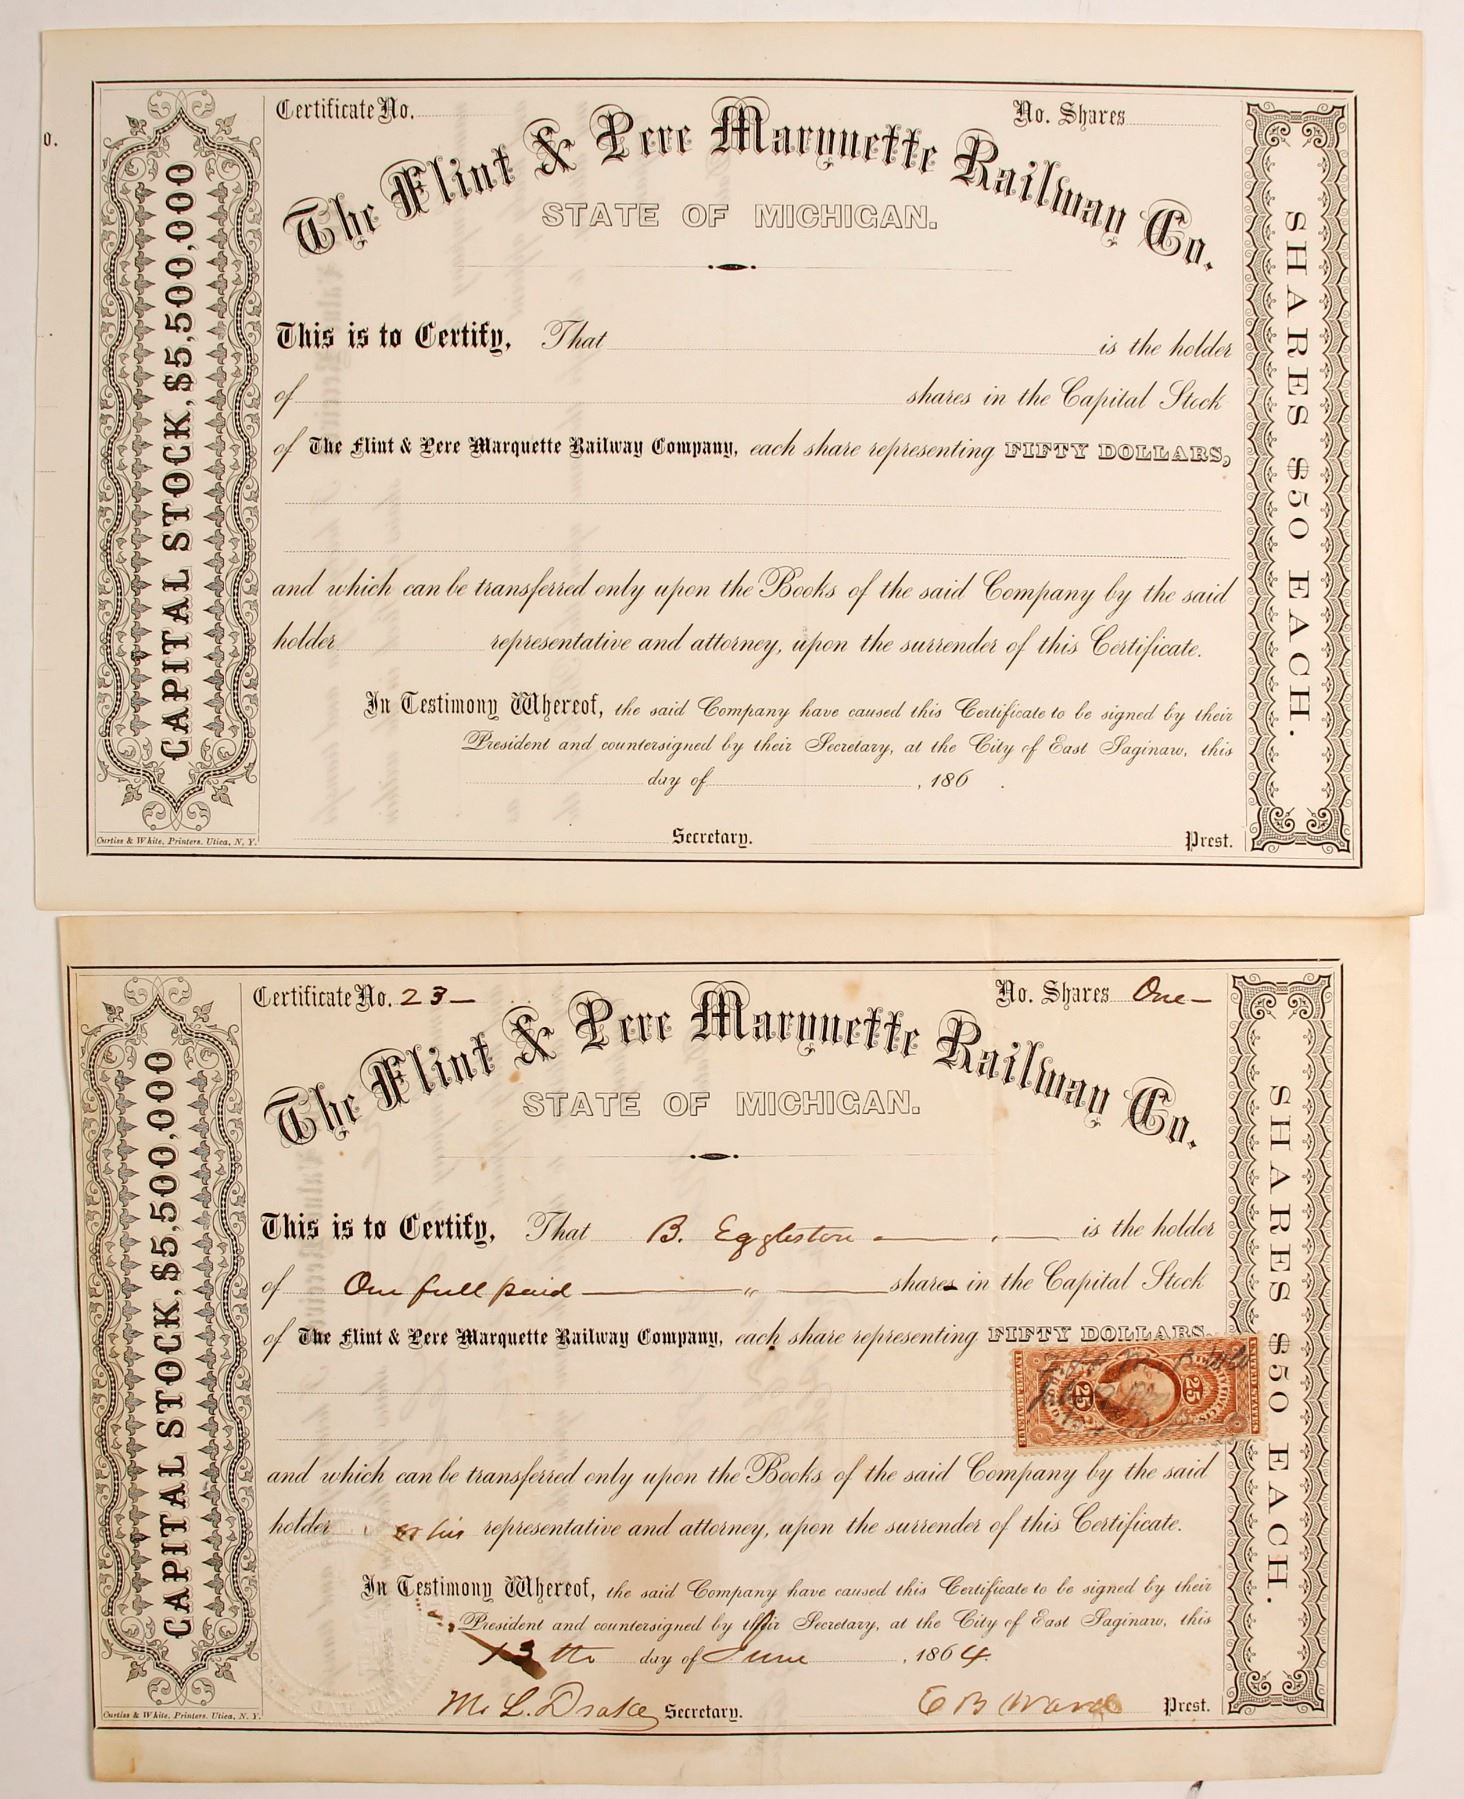 o.
Certificate No.
No. Shares
The Flint & Pere Marquette Railway Co.
STATE OF MICHIGAN.
CAPITAL STOCK, $5,500,000
SHARES $50 EACH.
This is to Certify, That is the holder
of shares in the Capital Stock
of The Flint & Pere Marquette Railway Company, each share representing FIFTY DOLLARS,
and which can be transferred only upon the Books of the said Company by the said
holder representative and attorney, upon the surrender of this Certificate.
In Testimony Whereof, the said Company have caused this Certificate to be signed by their
President and countersigned by their Secretary, at the City of East Saginaw, this
day of , 186 .
Secretary. Prest.
Curtiss & White, Printers. Utica, N. Y.
Certificate No. 23
No. Shares One
The Flint & Pere Marquette Railway Co.
STATE OF MICHIGAN.
CAPITAL STOCK, $5,500,000
SHARES $50 EACH.
This is to Certify, That B. Eggleston is the holder
of One full paid shares in the Capital Stock
of The Flint & Pere Marquette Railway Company, each share representing FIFTY DOLLARS,
25 25
and which can be transferred only upon the Books of the said Company by the said
holder or his representative and attorney, upon the surrender of this Certificate.
In Testimony Whereof, the said Company have caused this Certificate to be signed by their
President and countersigned by their Secretary, at the City of East Saginaw, this
13th day of June , 1864.
M. L. Drake Secretary. E B Ward Prest.
Curtiss & White, Printers. Utica, N. Y.